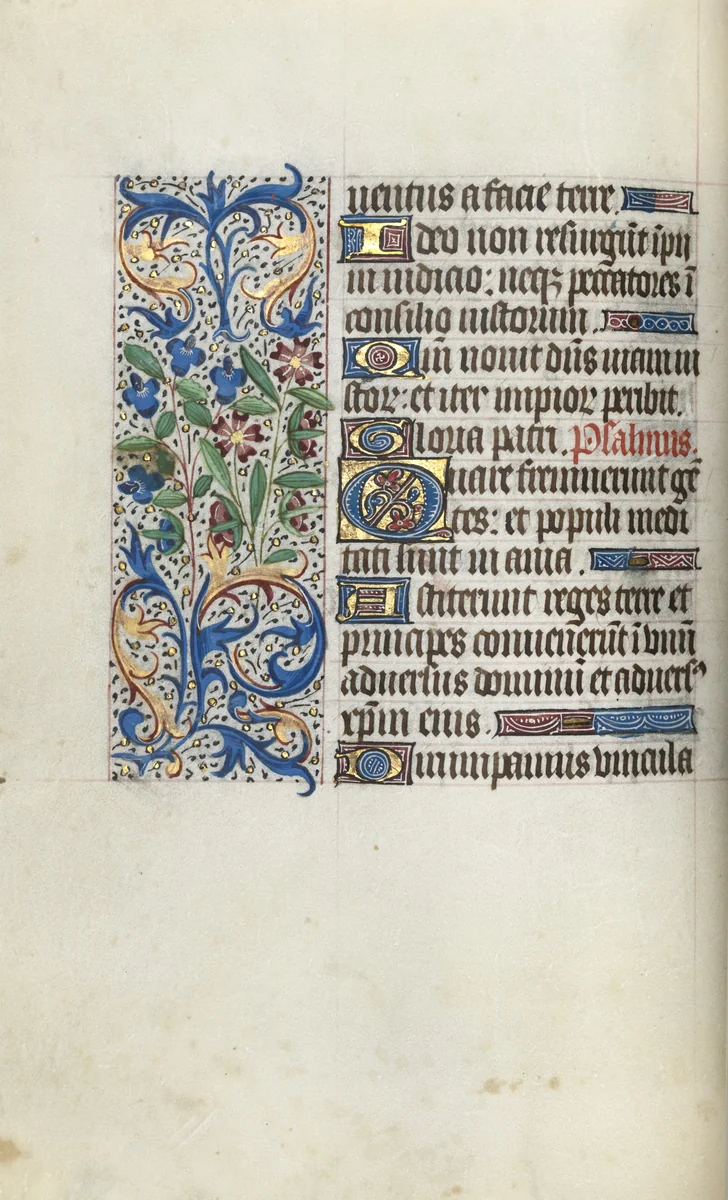 uentus a facie terre.
Ideo non resurgūt īpii
in iudicio: neqʒ peccatores ī
consilio iustorum.
Qm̄ nouit dn̄s uiam iu
stoꝝ: et iter impioꝝ peribit.
Gloria patri. Psalmus.
Quare fremuerunt gē
tes: et populi medi
tati sunt inania.
Astiterunt reges terre et
principes conuenerūt ī vnū
aduersus dominū et aduersꝰ
xp̄m eius.
Dirumpamus vincula